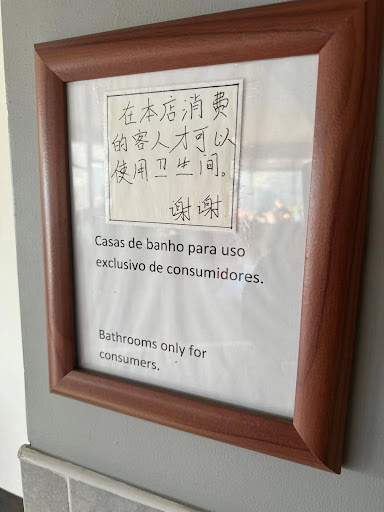 在本店消费
的客人才可以
使用卫生间。
谢谢
Casas de banho para uso
exclusivo de consumidores.
Bathrooms only for
consumers.